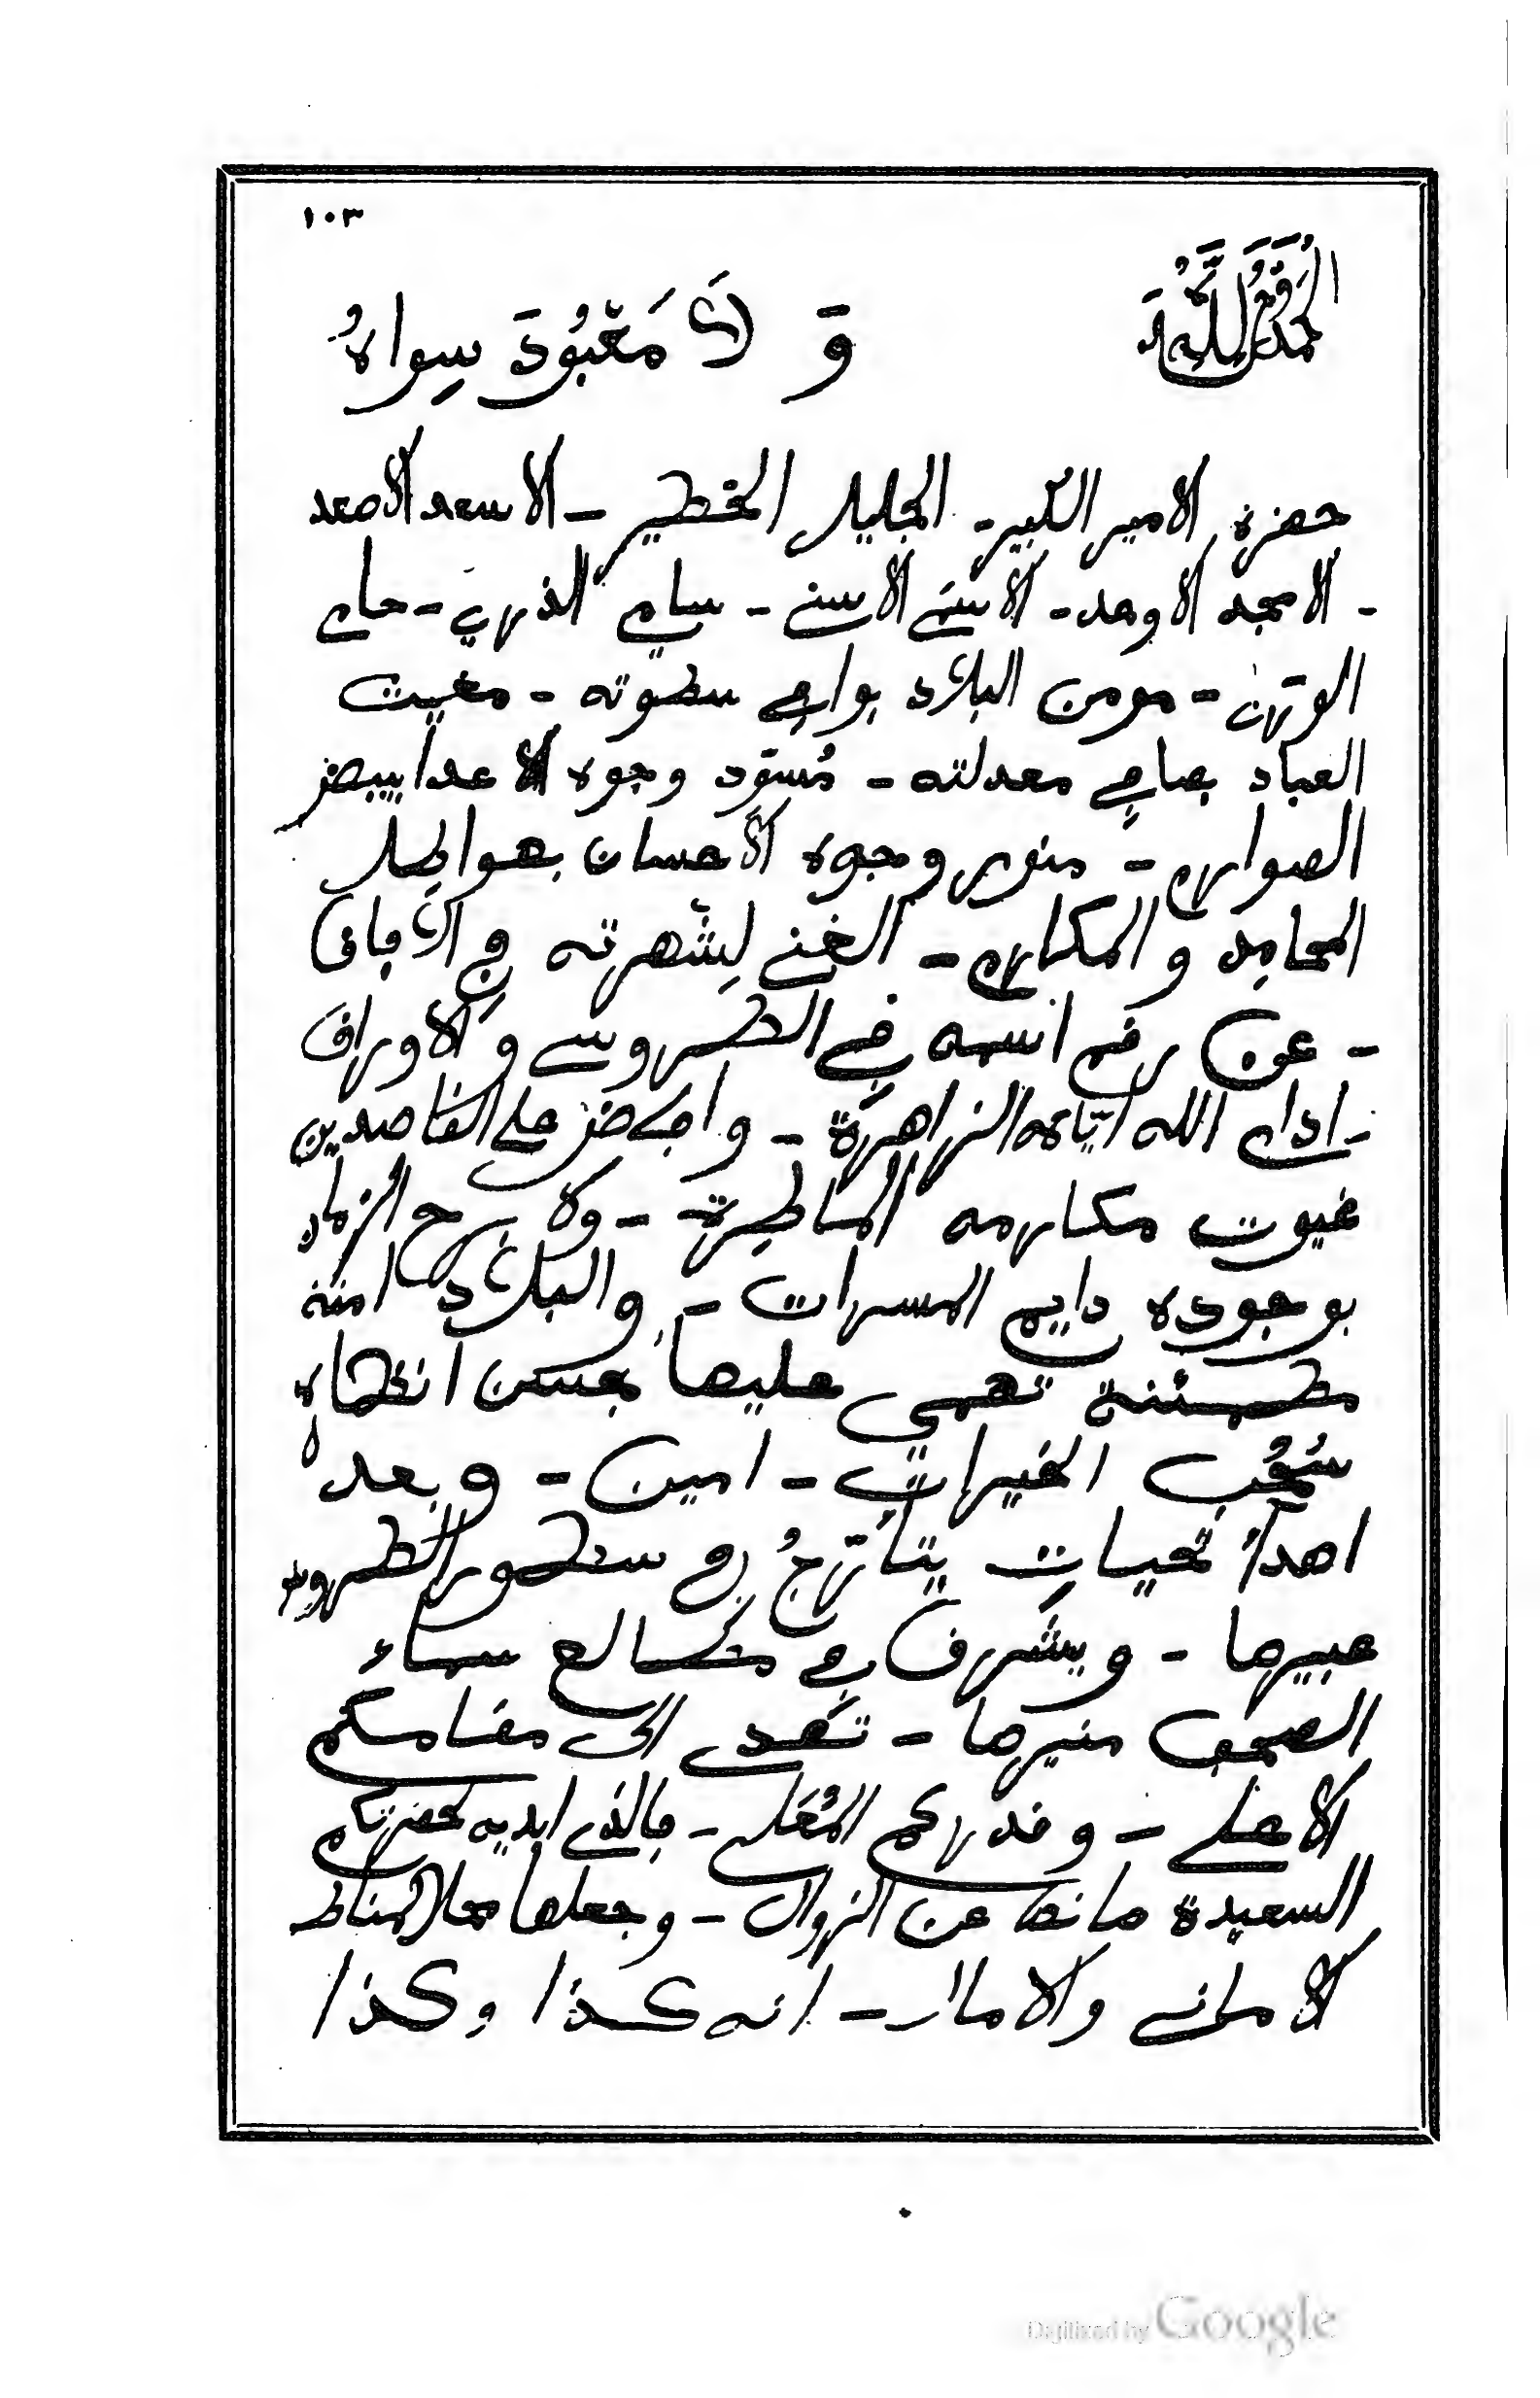 ١٠٣
الحمد لله وحده
وَ لاَ مَعْبُودَ سِواهُ
حضرة الامير الكبير - الجليل الخطير - الاسعد الاصعد
- الامجد الاوحد - الاسنى - سامي الذرى - حامي
الورى - مومن البلاد بوافي سطوته - مغيث
العباد بصافي معدلته - مُسوّد وجوه الاعدا ببيض
الصوارم - منور وجوه الاحسان بهواطل
المحامد و المكارم - الغني لِشهرته في الافاق
- عن رقم اسمه في الطروس و الاوراق
- ادام الله ايّامه الزاهرة - وافاض على القاصدين
غيوث مكارمه الماطرة - ولا برح الزمان
بوجوده دايم المسرات - والبلاد امنة
مطمئنة تهمي عليها بحسن انظاره
سُحُب الخيرات - امين - وبعد
اهدآ تحياتٍ يتأرّجُ في سطور الطروس
عبيرها - ويشرق في مطالع سماء
الصحف منيرها - تهدى الى مقامكم
الاعلى - وقدركم المُعَلى - فالذي ابديه لحضرتكم
السعيدة صانها عن الزوال - وجعلها محلا لمناط
الاماني والامال - انه كذا وكذا
Digitized by Google